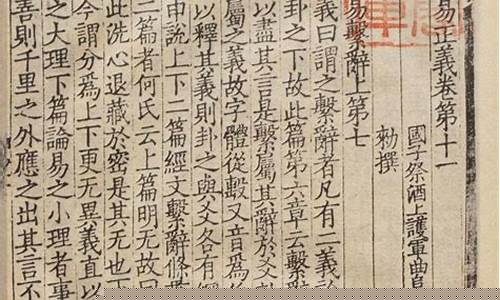 易正義卷第十一
國子祭酒上護軍曲
勑撰
易繫辭上第七
義曰謂之繫辭者凡有二義
卦之下故此篇第六章云繫辭
以盡其言是繫屬其辭於爻
屬之義故字體從毄又音爲係
以釋其義則卦之與爻各有
中說上下二篇經文繫辭條
二篇者何氏云上篇明无故曰
此洗心退藏於密是其无也下
今謂分爲上下更无異義直以
之大理下篇論易之小理者事
善則千里之外應之出其言不